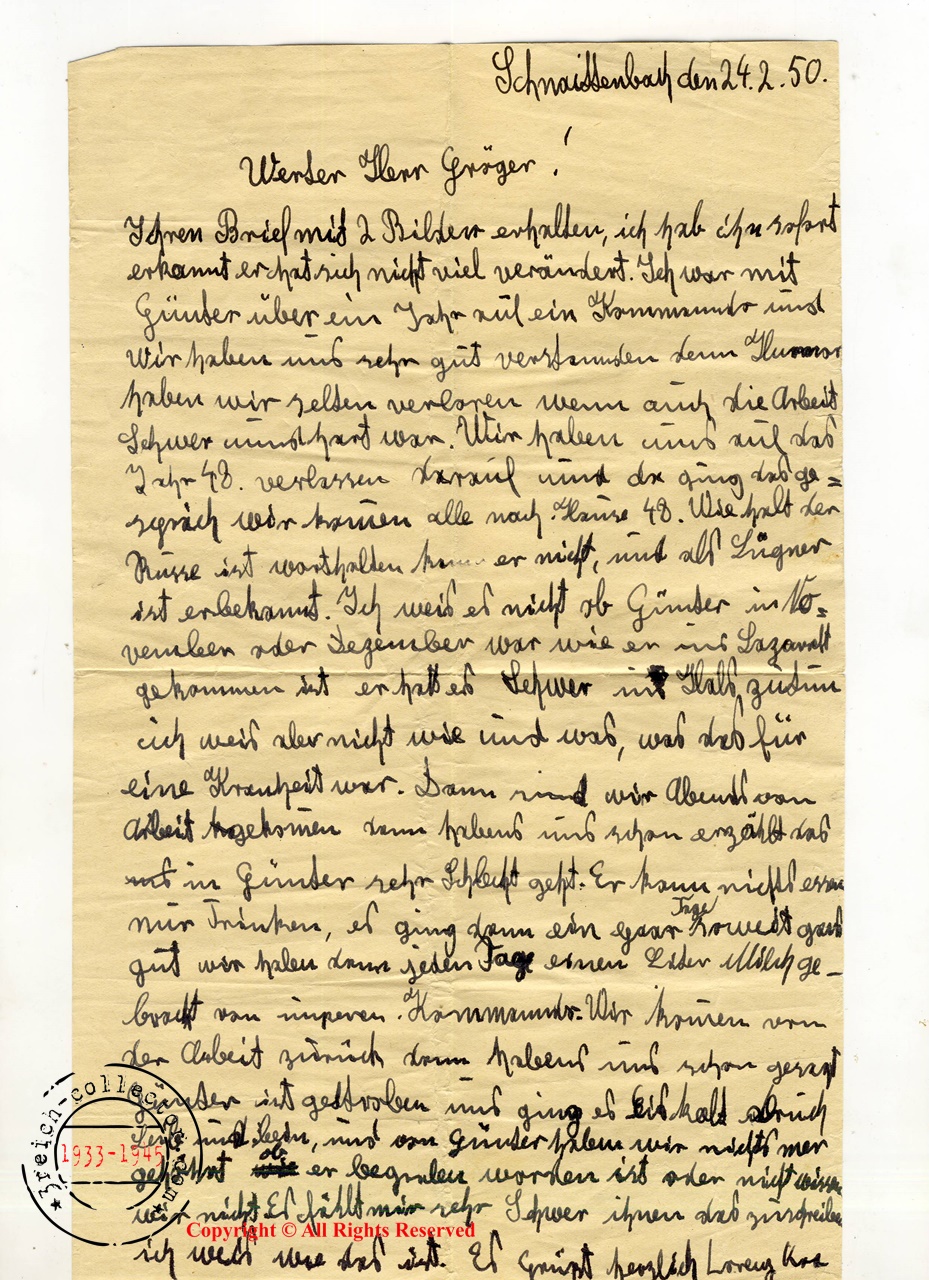 Schnaittenbach den 24.2.50.
Werter Herr Gröger!
Ihren Brief mit 2 Bilder erhalten, ich hab ihn sofort
erkannt er hat sich nicht viel verändert. Ich war mit
Günter über ein Jahr auf ein Kommando und
Wir haben uns sehr gut verstanden denn Humor
haben wir selten verloren wenn auch die Arbeit
Schwer und hart war. Wir haben uns auf das
Jahr 48. verlassen darauf und da ging das ge=
spräch wir komen alle nach Hause 48. Wie halt der
Russe ist worthalten kann er nicht, und als Lügner
ist er bekannt. Ich weis es nicht ob Günter in No=
vember oder Dezember war wie er ins Lazarett
gekommen ist er hatt es Schwer ins Hals zutun
ich weis aber nicht wie und was, was das für
eine Kranheit war. Dann sind wir Abends von
Arbeit gekomen dann habens uns schon erzählt das
in Günter sehr Schlecht geht. Er kann nichts essen
nur Trinken, es ging dann ein paar Tage soweit ganz
gut wir haben dann jeden Tage einen Liter Milch ge-
bracht von unseren Kommando. Wir komen von
der Arbeit zurück dann habens uns schon gesagt
Günter ist gestorben uns ging es Eis kalt durch
und bein, und von Günter haben wir nichts mer
gehöhrt ob er begraben worden ist oder nicht wissen
wir nicht Es fählt mir sehr Schwer ihnen das zuschreiben
ich weis wie das ist. Es Grüßt herzlich Lorenz
*3reich-collector.com*
1933-1945
Copyright © All Rights Reserved